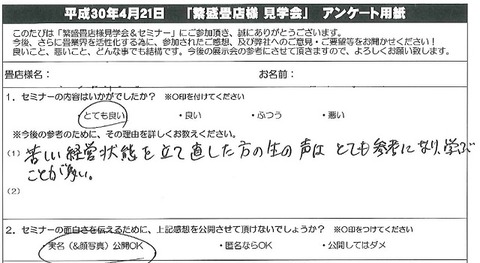 平成30年4月21日　「繁盛畳店様 見学会」 アンケート用紙
このたびは「繁盛畳店様見学会＆セミナー」にご参加頂き、誠にありがとうございます。
今後、さらに畳業界を活性化する為に、参加されたご感想、及び弊社へのご意見・ご要望等をお聞かせください！
良いこと、悪いこと、どんな事でも結構です。今後の展示会の参考にさせて頂きますので、よろしくお願い致します。
畳店様名：　お名前：
1．セミナーの内容はいかがでしたか？　※○印を付けてください
・とても良い　・良い　・ふつう　・悪い
※今後の参考のために、その理由を詳しくお教えください。
(1) 苦しい経営状態を立て直した方の生の声は とても参考になり、学ぶ
ことが多い。
(2)
2．セミナーの面白さを伝えるために、上記感想を公開させて頂けないでしょうか？　※○印をつけてください
・実名（&顔写真）公開OK　・匿名ならOK　・公開してはダメ